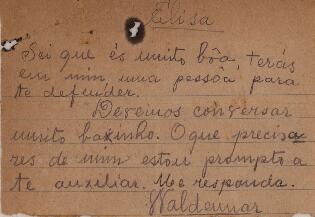 Elisa
Sei que és muito bôa, terás
em mim uma pessôa, para
te defender.
Devemos conversar
muito baxinho. O que precisa-
res de mim estou prompto a
te auxiliar. Me responda.
Waldemar